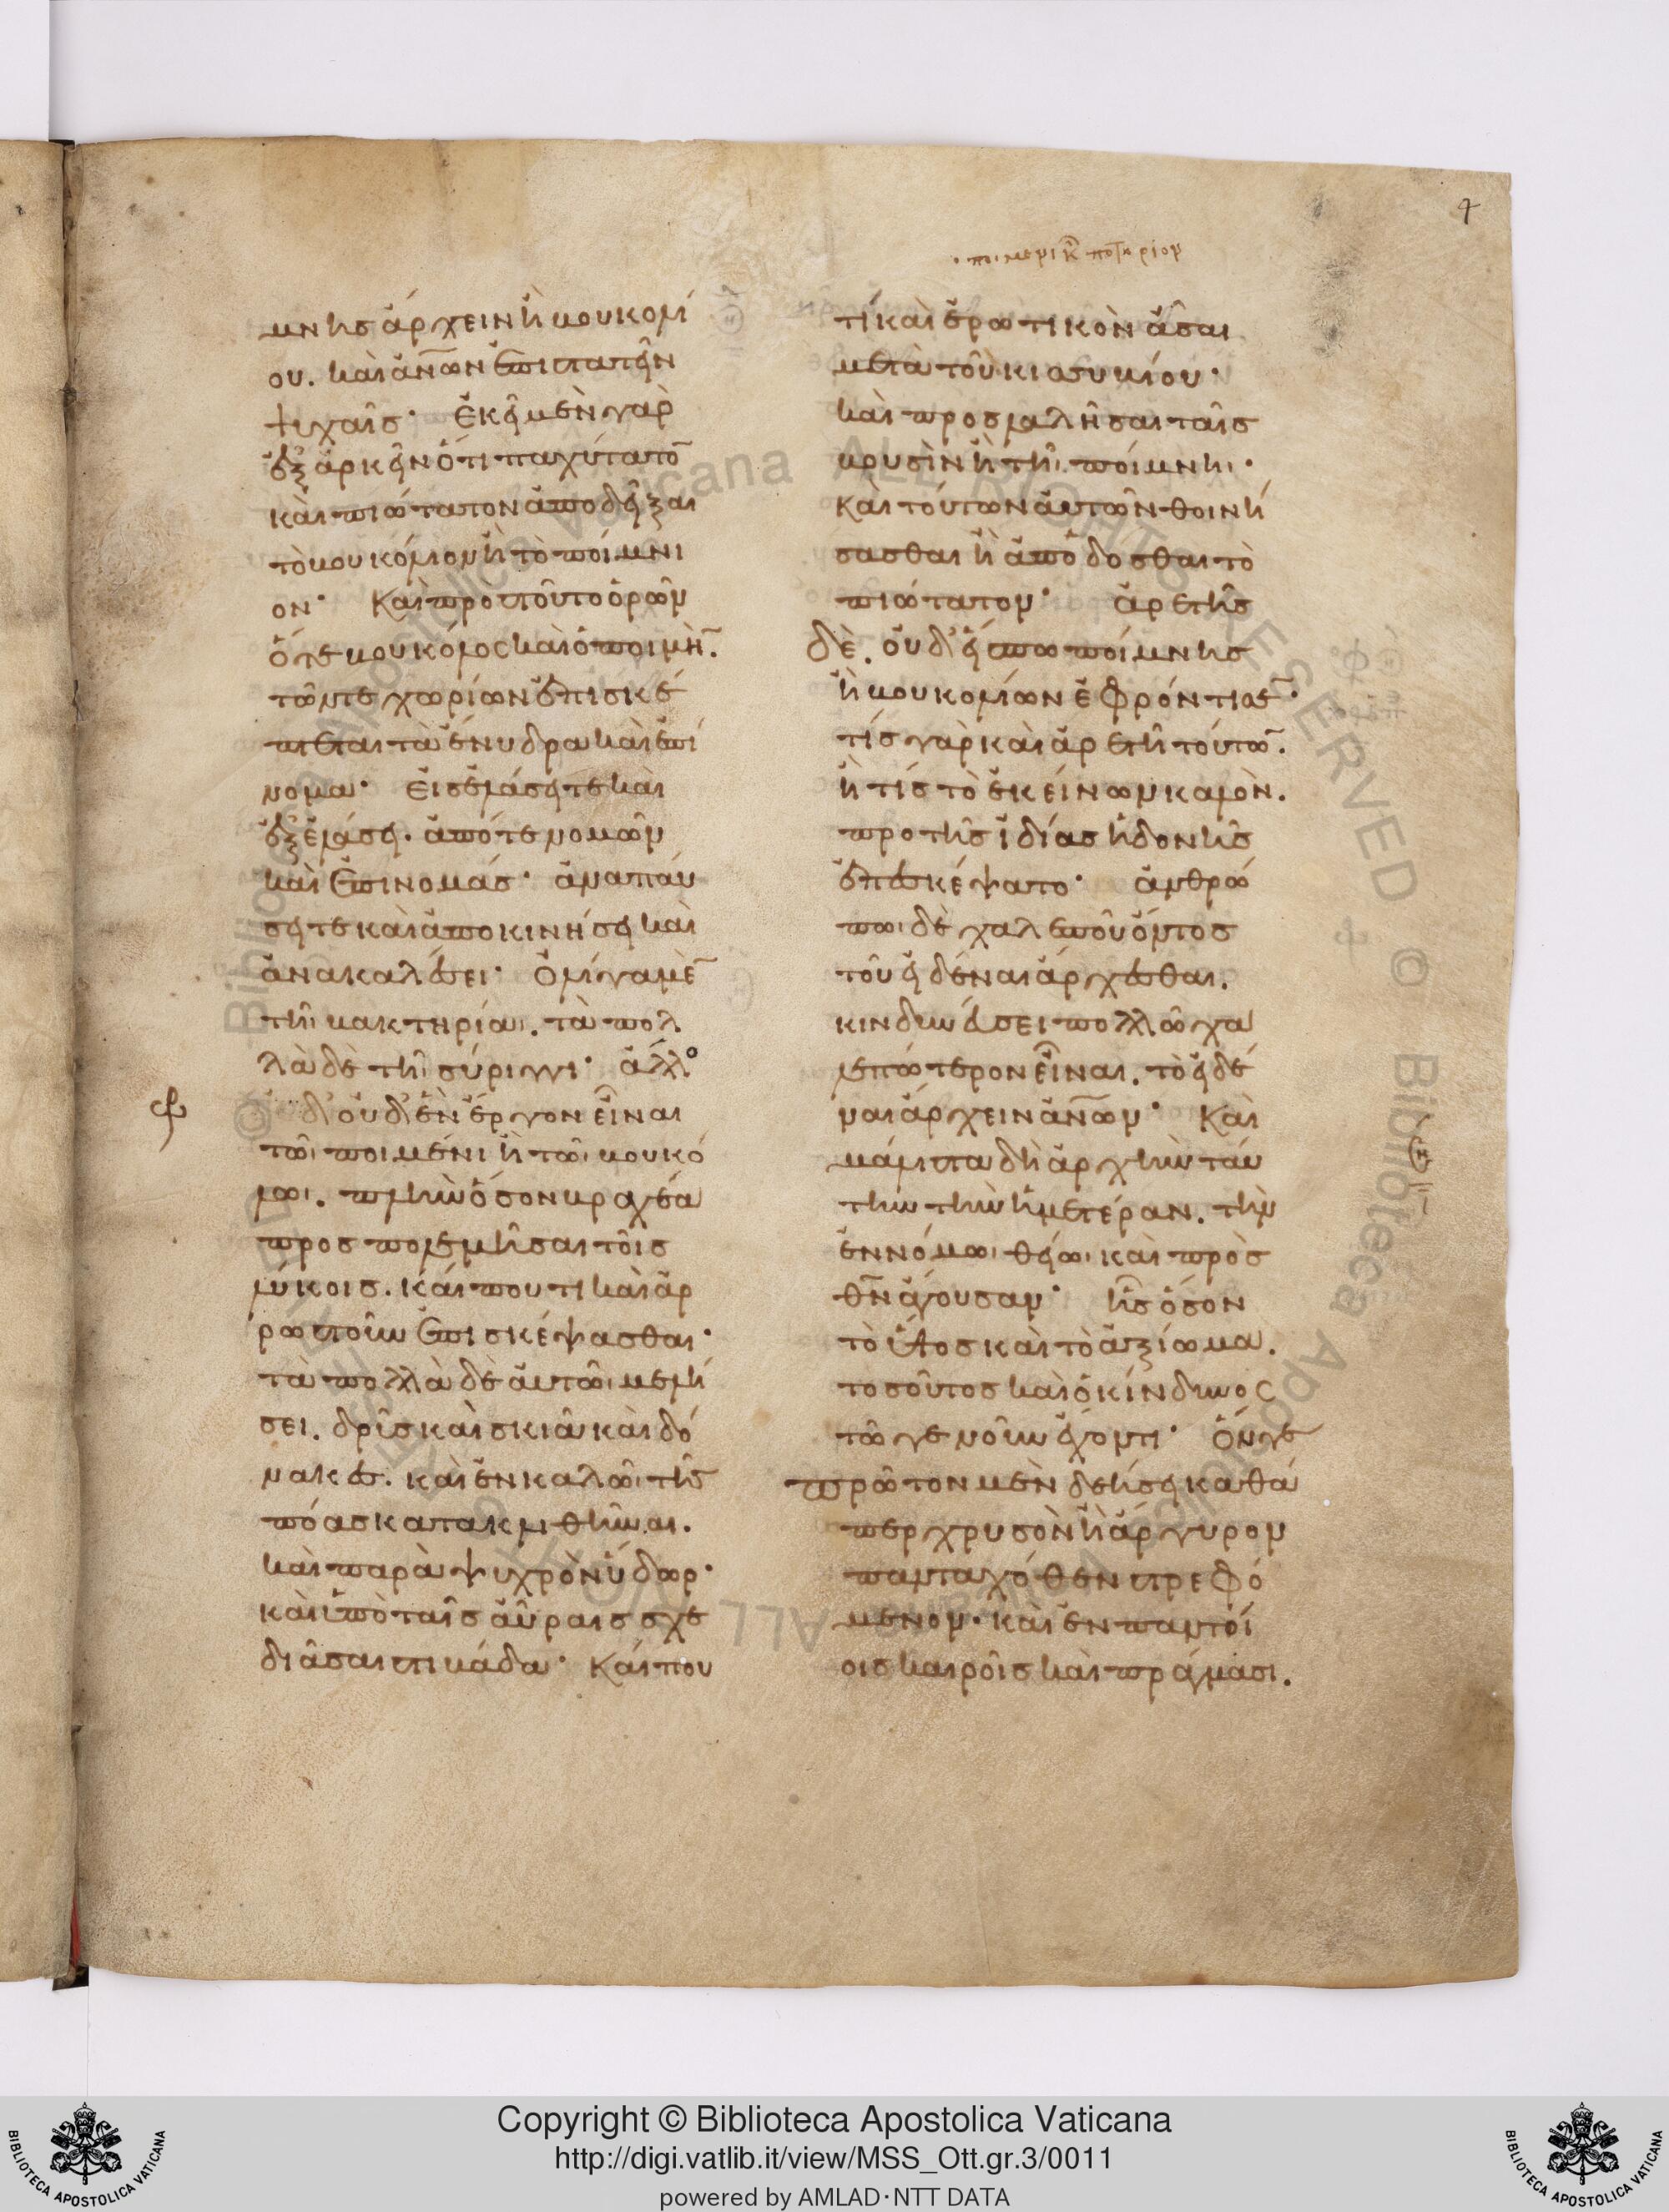 4
ποιμενικ ποτηριον
μνης ἄρχειν ἢ βουκολί
ου. καὶ ἀν̅ων ἐπιστατεῖν
ψυχαῖς· Ἐκεῖ μὲν γὰρ
ἐξαρκεῖν ὅτι παχύτατο̅
καὶ πιότατον ἀποδεῖξαι
τὸ βουκόλιον ἢ τὸ ποίμνι
ον· Καὶ πρὸς τοῦτο ὁρῶν
ὅτε βουκόλος καὶ ὁ ποιμὴ̅.
τῶν τε χωρίων ἐπισκέ
πτεται τὰ ἔνυδρα καὶ ἐπί
νομα· εἰσελάσει τε καὶ
ἐξελάσει. ἀπό τε νομῶν
καὶ ἐπὶ νομάς· ἀναπαύ
σει τε καὶ ἀποκινήσει καὶ
ἀνακαλέσει· Ὀλίγα μὲ̅
τῆι βακτηρίαι. τὰ πολ
λὰ δὲ τῆι σύριγγι· ἄλλο
δ' οὐδὲν ἔργον εἶναι
τῶι ποιμένι ἢ τῶι βουκό
λωι. πλὴν ὅσον βραχέα
προσπολεμῆσαι τοῖς
λύκοις. καί που τι καὶ ἀρ
ρωστοῦν ἐπισκέψασθαι·
τὰ πολλὰ δὲ αὐτῶι μελή
σει. δρῦς καὶ σκιὰ καὶ δό
νακες. καὶ ἐν καλῶι τῆς
πόας κατακλιθῆναι.
καὶ παρὰ ψυχρὸν ὕδωρ·
καὶ ὑπὸ ταῖς αὔραις σχε
διᾶσαι στιβάδα· Καί που
τί καὶ ἐρωτικὸν ᾆσαι
μετὰ τοῦ κισσυβίου·
καὶ προσλαλῆσαι ταῖς
βουσὶν ἢ τῆι ποίμνηι·
καὶ τούτων αὐτῶν θοινή
σασθαι ἢ ἀποδόσθαι τὸ
πιότατον· ἀρετῆς
δὲ. οὐδείπω ποίμνης
ἢ βουκολίων ἐφρόντισε̅·
τίς γὰρ καὶ ἀρετὴ τούτω̅.
ἢ τίς τὸ ἐκείνων καλὸν.
προ τῆς ἰδίας ἡδονῆς
ἐπεσκέψατο· ἀνθρώ
πωι δὲ χαλεποῦ ὄντος
τοῦ εἰδέναι ἄρχεσθαι.
κινδυνεύσει πολλῶ χα
λεπώτερον εἶναι. τὸ εἰδέ
ναι ἄρχειν ἀν̅ων· Καὶ
μάλιστα δὴ ἀρχὴν ταύ
την τὴν ἡμετέραν. τὴν
ἐν νόμωι θείωι καὶ πρὸς
θ̅ν ἄγουσαν· ἧς ὅσον
τὸ ὕψος καὶ τὸ ἀξίωμα.
τοσοῦτος καὶ ὁ κίνδυνος
τῶ γε νοῦν ἔχοντι· Ὅν γε
πρῶτον μὲν δεήσει καθά
περ χρυσὸν ἢ ἄργυρον
πανταχόθεν στρεφό
μενον. καὶ ἐν παντοί
οις καιροῖς καὶ πράγμασι.
Copyright © Biblioteca Apostolica Vaticana
http://digi.vatlib.it/view/MSS_Ott.gr.3/0011
powered by AMLAD·NTT DATA
BIBLIOTECA APOSTOLICA VATICANA
BIBLIOTECA APOSTOLICA VATICANA